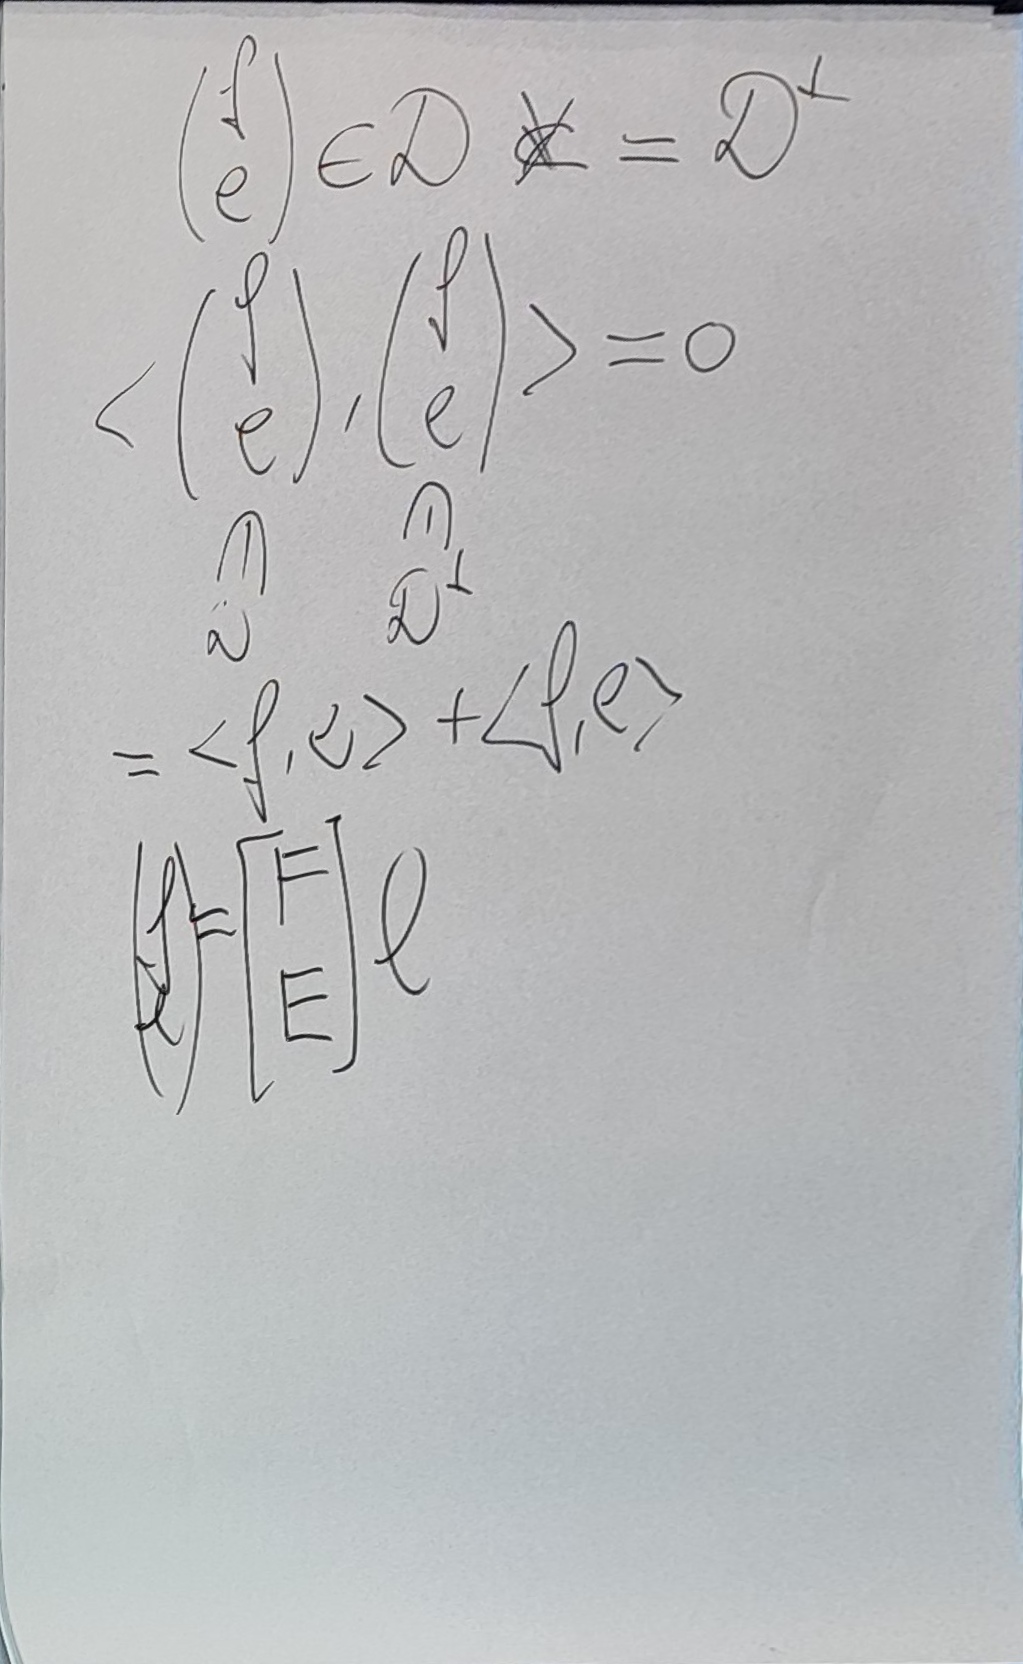 (f e) ∈ D = D^⊥
<(f e), (f e)> = 0
∩ ∩
D D^⊥
= <f, e> + <f, e>
(f e) = [F E] l